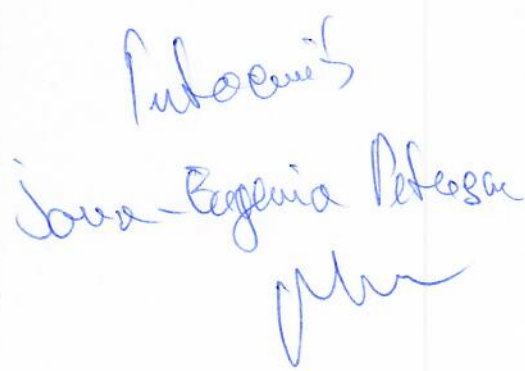 Întocmit
Ioana-Eugenia Petrosan